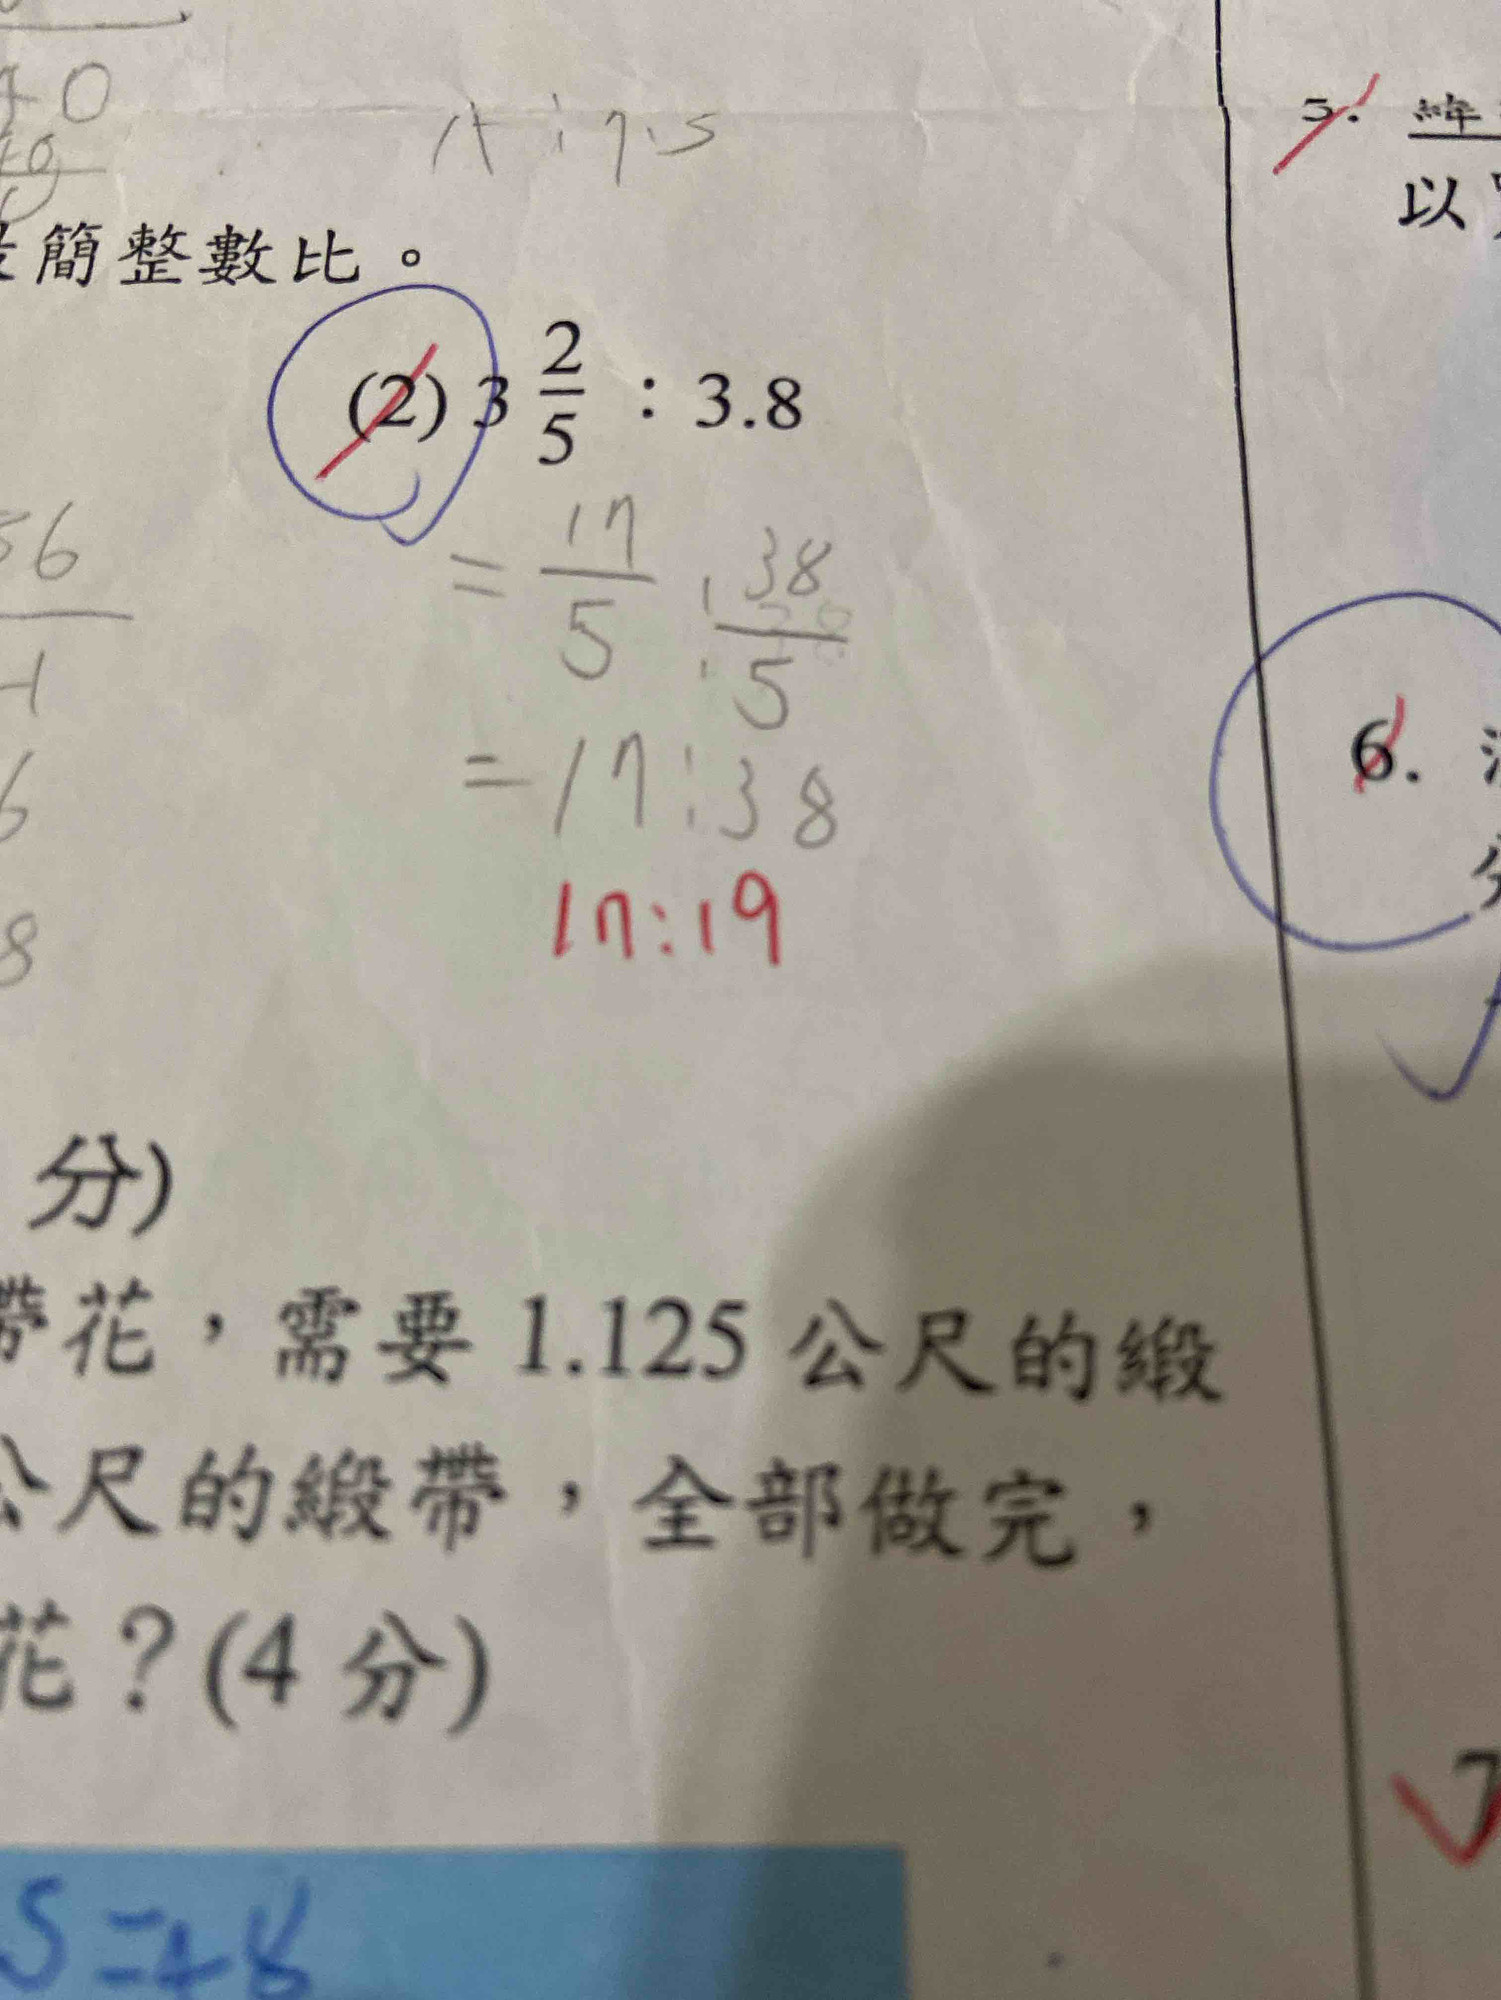 40
1t : 7.5
簡整數比。
5.
以
(2) 3 2/5 : 3.8
56
= 17/5 : 38/5
-1
= 17:38
6.
6
17:19
8
分)
帶花，需要 1.125 公尺的緞
公尺的緞帶，全部做完，
花？(4 分)
7
5=48